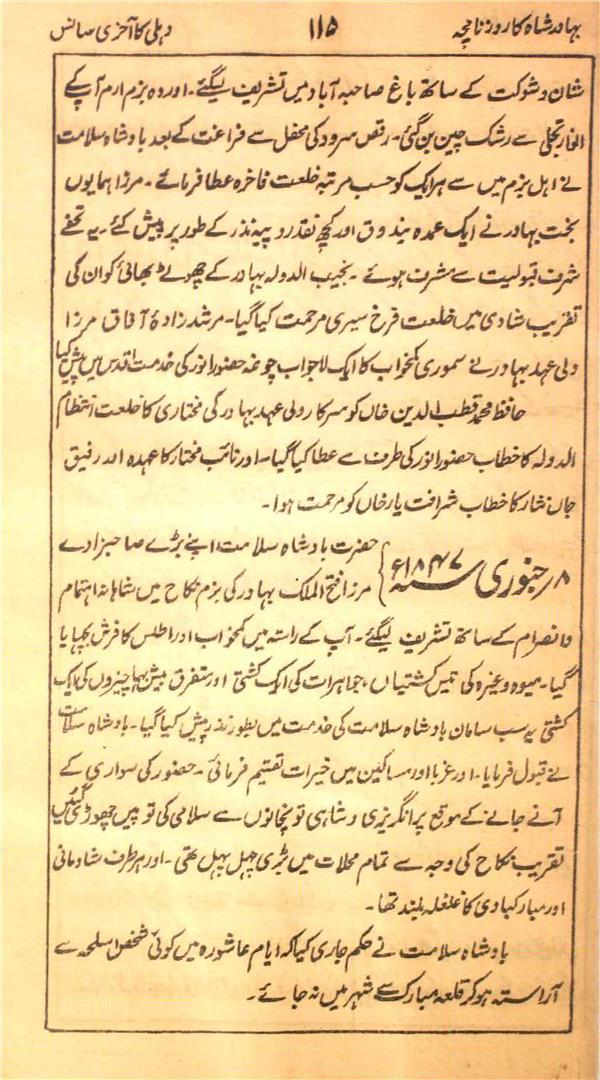 بہادر شاہ کا روزنامچہ ۱۱۵ دہلی کا آخری سانس
شان و شوکت کے ساتھ باغ صاحبہ آباد میں تشریف لیگئے۔ اور وہ بزم ارم آپکے
انوار تجلی سے رشک چین بن گئی۔ رقص سرود کی محفل سے فراغت کے بعد بادشاہ سلامت
نے اہل بزم میں سے ہر ایک کو حسب مرتبہ خلعت فاخرہ عطا فرمائے۔ مرزا ہمایوں
بخت بہادر نے ایک عمدہ بندوق اور کچھ نقد روپیہ نذر کے طور پر پیش کئے۔ یہ تحفے
شرف قبولیت سے مشرف ہوئے۔ نجیب الدولہ بہادر کے چھوٹے بھائی کو ان کی
تقریب شادی میں خلعت فرخ سیری مرحمت کیا گیا۔ مرشد زادۂ آفاق مرزا
ولی عہد بہادر نے سموری کمخواب کا ایک لاجواب چوغہ حضور انور کی خدمت اقدس میں پیش کیا
حافظ محمد قطب الدین خاں کو سرکار ولی عہد بہادر کی مختاری کا خلعت انتظام
الدولہ کا خطاب حضور انور کی طرف سے عطا کیا گیا۔ اور نائب مختار کا عہدہ اور رفیق
جاں نثار کا خطاب شرافت یار خاں کو مرحمت ہوا۔
۸؍ جنوری سنہ ۱۸۴۷ء } حضرت بادشاہ سلامت اپنے بڑے صاحبزادے
مرزا فتح الملک بہادر کی بزم نکاح میں شاہانہ اہتمام
و انصرام کے ساتھ تشریف لیگئے۔ آپ کے راستہ میں کمخواب اور اطلس کا فرش بچھایا
گیا۔ میوہ وغیرہ کی تیس کشتیاں، جواہرات کی ایک کشتی اور متفرق بیش بہا چیزوں کی ایک
کشتی یہ سب سامان بادشاہ سلامت کی خدمت میں بطور نذر پیش کیا گیا۔ بادشاہ سلامت
نے قبول فرمایا۔ اور غربا اور مساکین میں خیرات تقسیم فرمائی۔ حضور کی سواری کے
آنے جانے کے موقع پر انگریزی و شاہی توپخانوں سے سلامی کی توپیں چھوڑی گئیں
تقریب نکاح کی وجہ سے تمام محلات میں بڑی چہل پہل تھی۔ اور ہر طرف شادمانی
اور مبارکبادی کا غلغلہ بلند تھا۔
بادشاہ سلامت نے حکم جاری کیا کہ ایام عاشورہ میں کوئی شخص اسلحہ سے
آراستہ ہو کر قلعہ مبارک سے شہر میں نہ جائے۔